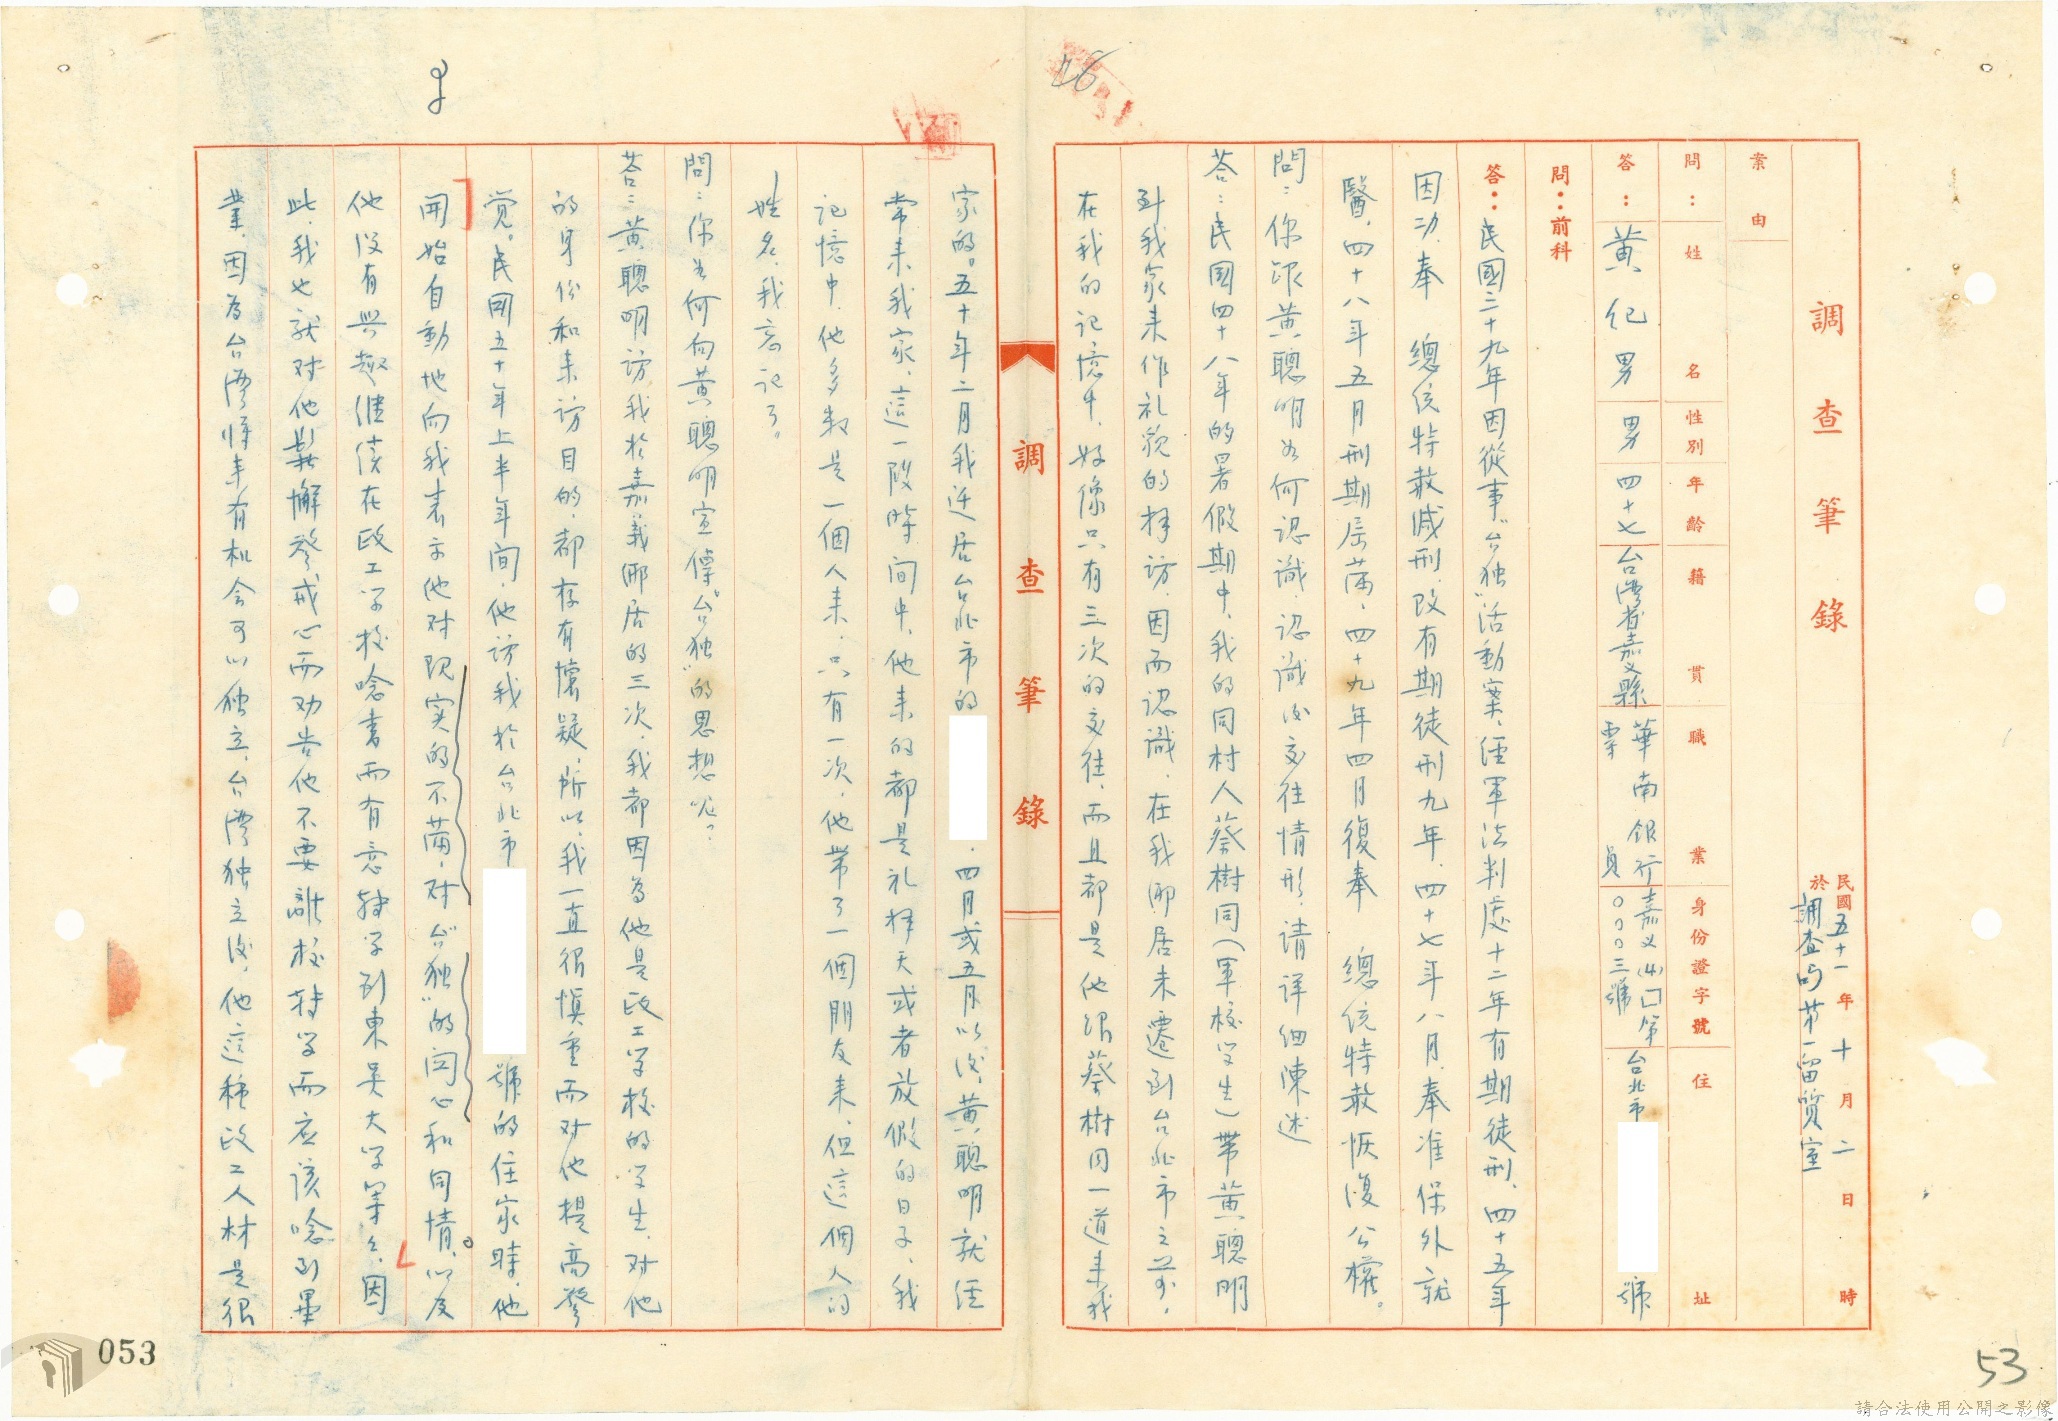 調查筆錄
民國五十一年十月二日時
於調查局第一留質室
案由
問：姓名 性別 年齡 籍貫 職業 身份證字號 住址
答：黃紀男 男 四十七 台灣省嘉义縣 華南銀行專員 嘉义(4)口第〇〇〇三號 台北市 號
問：前科
答：民國三十九年因從事“台独”活動案，經軍法判處十二年有期徒刑，四十五年
因功奉 總統特赦減刑，改有期徒刑九年，四十七年八月奉准保外就
醫，四十八年五月刑期屆滿，四十九年四月復奉 總統特赦恢復公權。
問：你跟黃聰明如何認識，認識後交往情形，请详細陳述
答：民國四十八年的暑假期中，我的同村人蔡樹同（軍校学生）帶黃聰明
到我家来作礼貌的拜访，因而认識，在我鄉居未遷到台北市之前，
在我的记憶中，好像只有三次的交往，而且都是他跟蔡樹同一道来我
調查筆錄
家的。五十年二月我迁居台北市的 ，四月或五月以後，黃聰明就经
常来我家，這一段時间中，他来的都是礼拜天或者放假的日子，我
记憶中，他多数是一個人来，只有一次，他帶了一個朋友来，但這個人的
姓名，我忘记了。
問：你為何向黃聰明宣傳“台独”的思想呢？
答：黃聰明访我於嘉義鄉居的三次，我都因為他是政工学校的学生，对他
的身份和来访目的，都存有懷疑，所以，我一直很慎重而对他提高警
觉。民國五十年上半年间，他访我於台北市 號的住家時，他
開始自動地向我表示他对现实的不满，对“台独”的関心和同情，以及
他没有興趣继续在政工学校唸書而有意转学到東吴大学等々，因
此，我也就对他鬆懈警戒心而劝告他不要離校转学而应该唸到畢
業，因為台湾将来有机会可以独立，台湾独立後，他這種政工人材是很
053
53
請合法使用公開之影像